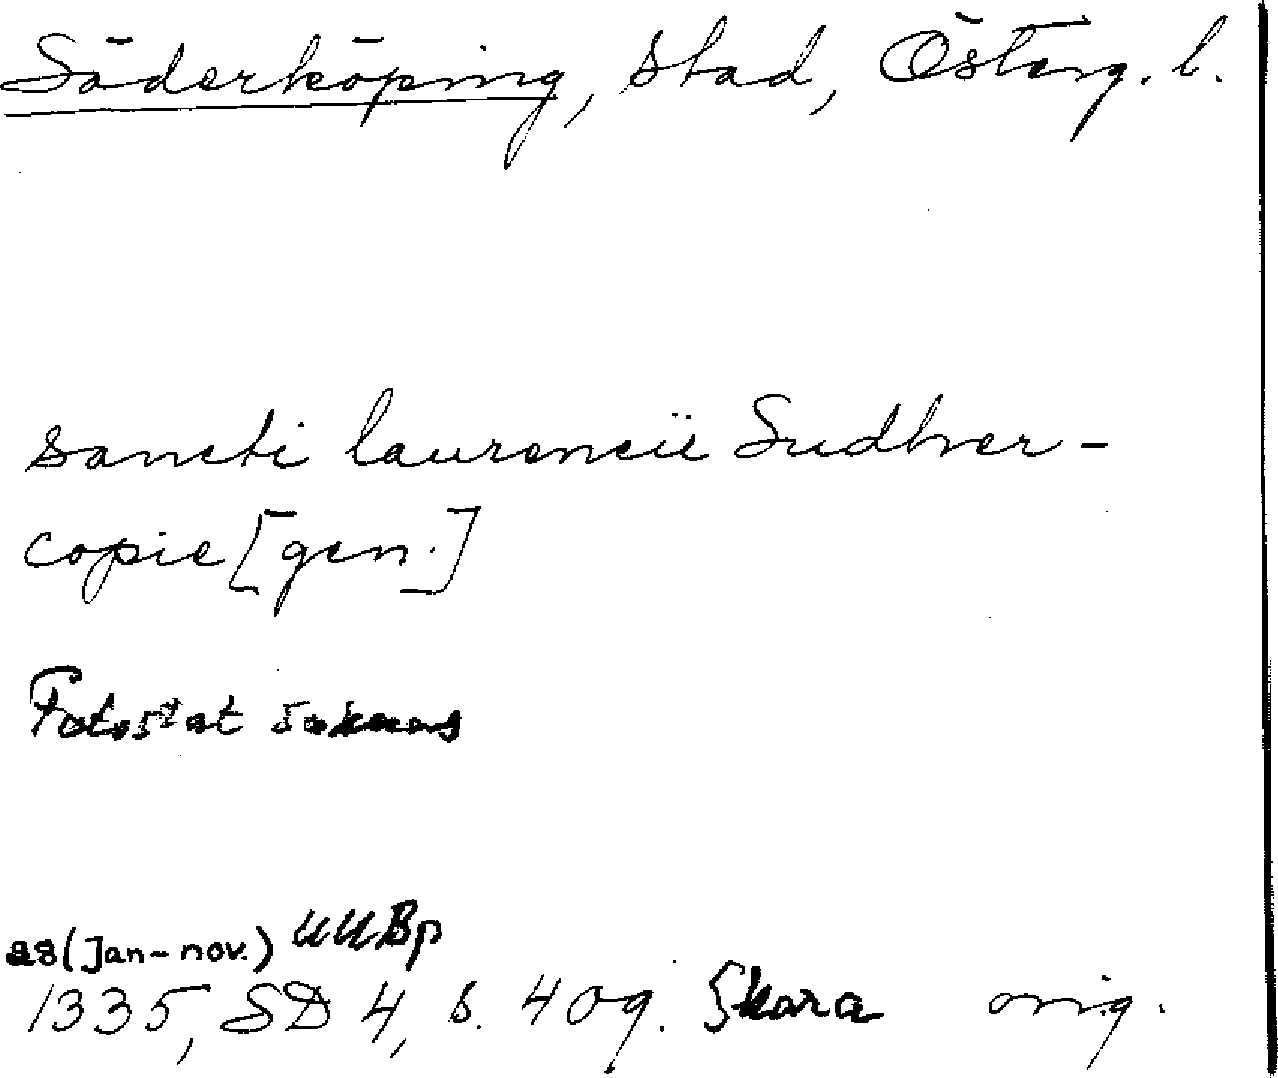 Söderköping, stad, Österg. l.
sancti laurencii Sudhver-
copie [gen.]
Fotostat saknas
28 (Jan-nov.) UUBp
1335, SD 4, s. 409. Skara orig.